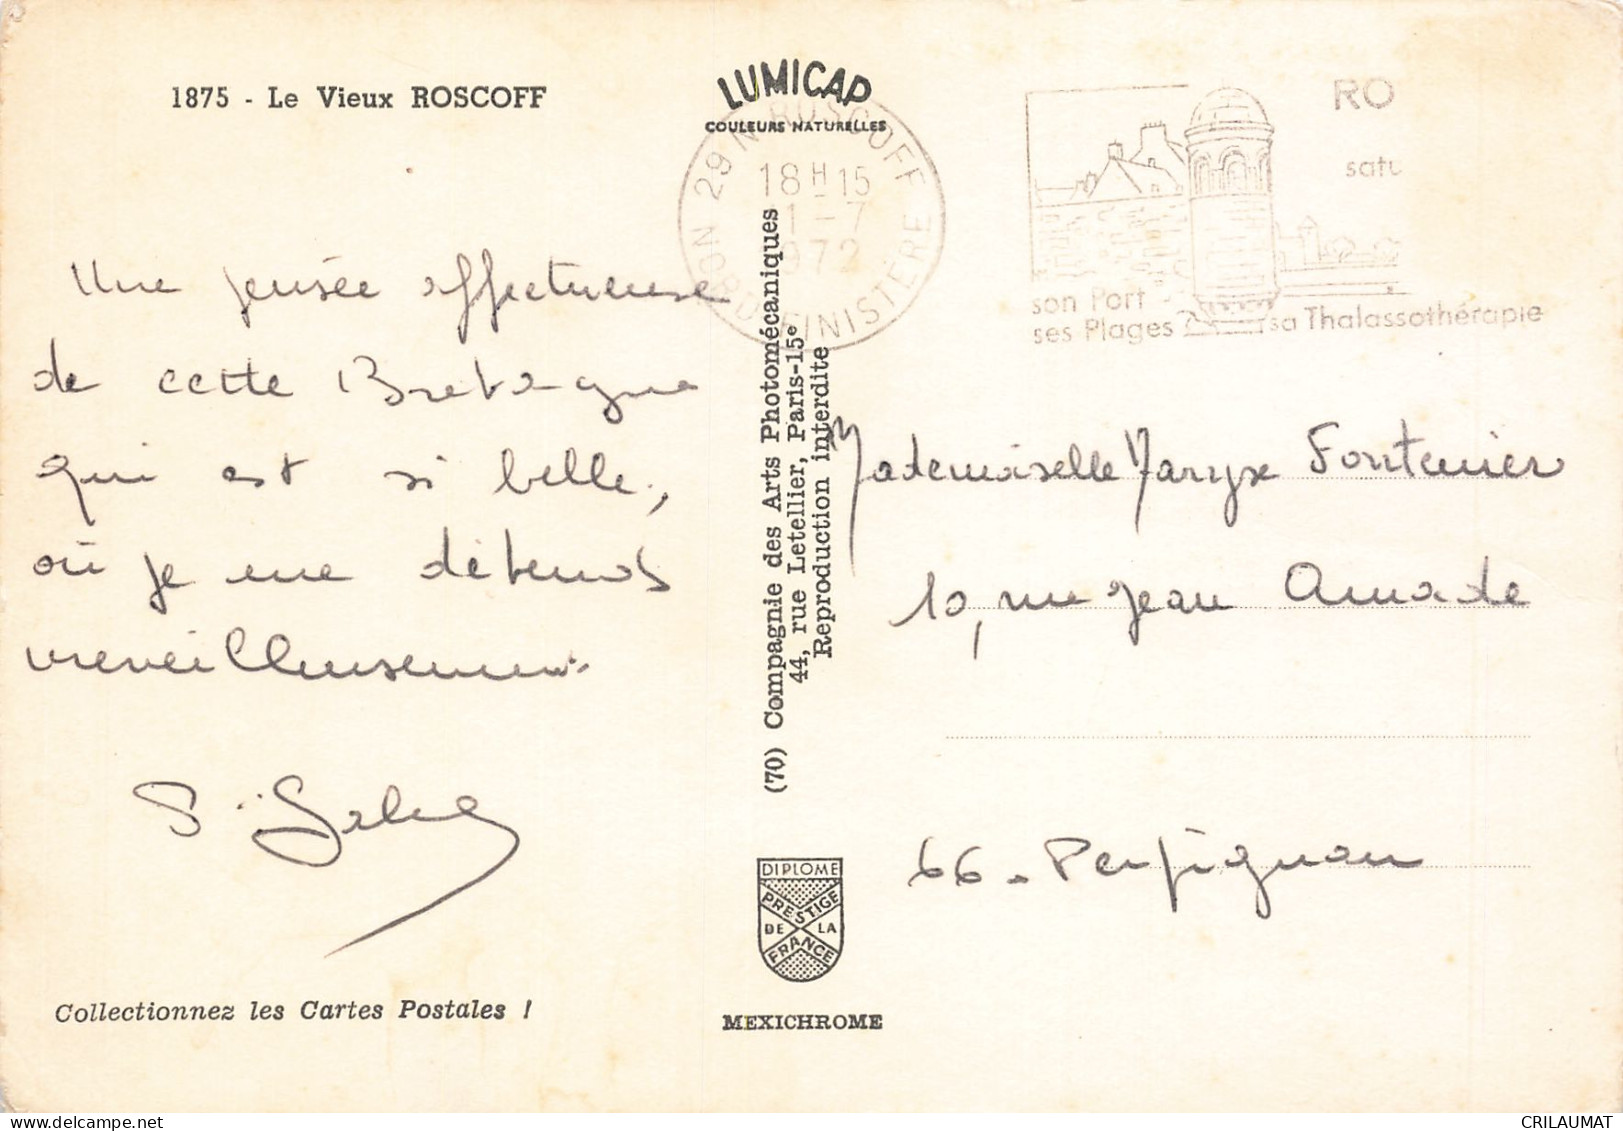 1875 - Le Vieux ROSCOFF
LUMICAP
COULEURS NATURELLES
29 N ROSCOFF
18H15
1-7
1972
NORD-FINISTÈRE
RO
satu
son Port
ses Plages
sa Thalassothérapie
Une pensée affectueuse
de cette Bretagne
qui est si belle,
où je me détends
merveilleusement.
(70) Compagnie des Arts Photomécaniques
44, rue Letellier, Paris-15e
Reproduction interdite
Mademoiselle Maryse Fontenier
10, rue Jean Amade
66 - Perpignan
DIPLOME
PRESTIGE
DE LA
FRANCE
Collectionnez les Cartes Postales !
MEXICHROME
CRILAUMAT